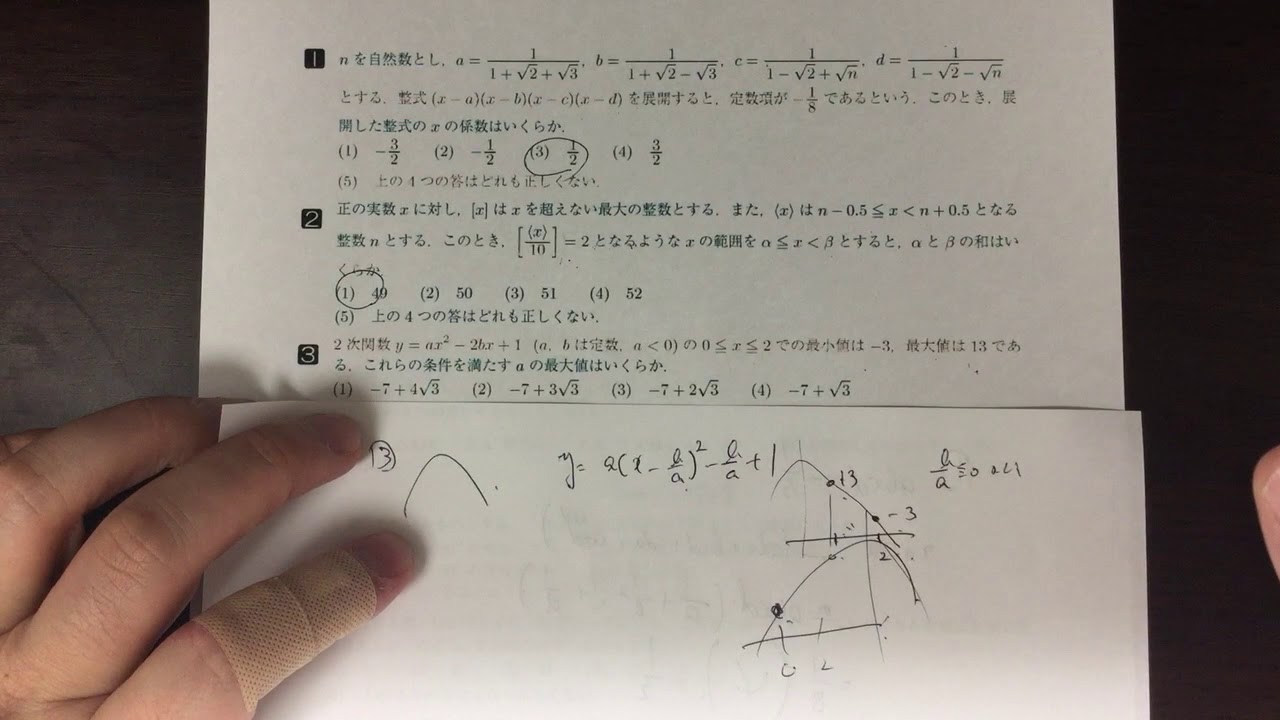 1 nを自然数とし，a = 1/(1+√2+√3)，b = 1/(1+√2−√3)，c = 1/(1−√2+√n)，d = 1/(1−√2−√n)
とする．整式 (x−a)(x−b)(x−c)(x−d) を展開すると，定数項が −1/8 であるという．このとき，展
開した整式の x の係数はいくらか．
(1) −3/2 (2) −1/2 (3) 1/2 (4) 3/2
(5) 上の4つの答はどれも正しくない．
2 正の実数 x に対し，[x] は x を超えない最大の整数とする．また，⟨x⟩ は n−0.5 ≦ x < n+0.5 となる
整数 n とする．このとき，[⟨x⟩/10] = 2 となるような x の範囲を α ≦ x < β とすると，α と β の和はい
くらか
(1) 49 (2) 50 (3) 51 (4) 52
(5) 上の4つの答はどれも正しくない．
3 2次関数 y = ax² − 2bx + 1 (a, b は定数, a < 0) の 0 ≦ x ≦ 2 での最小値は −3，最大値は 13 であ
る．これらの条件を満たす a の最大値はいくらか．
(1) −7+4√3 (2) −7+3√3 (3) −7+2√3 (4) −7+√3
y = a(x − b/a)² − b/a + 1
13
b/a ≦ 0
−3
2
0